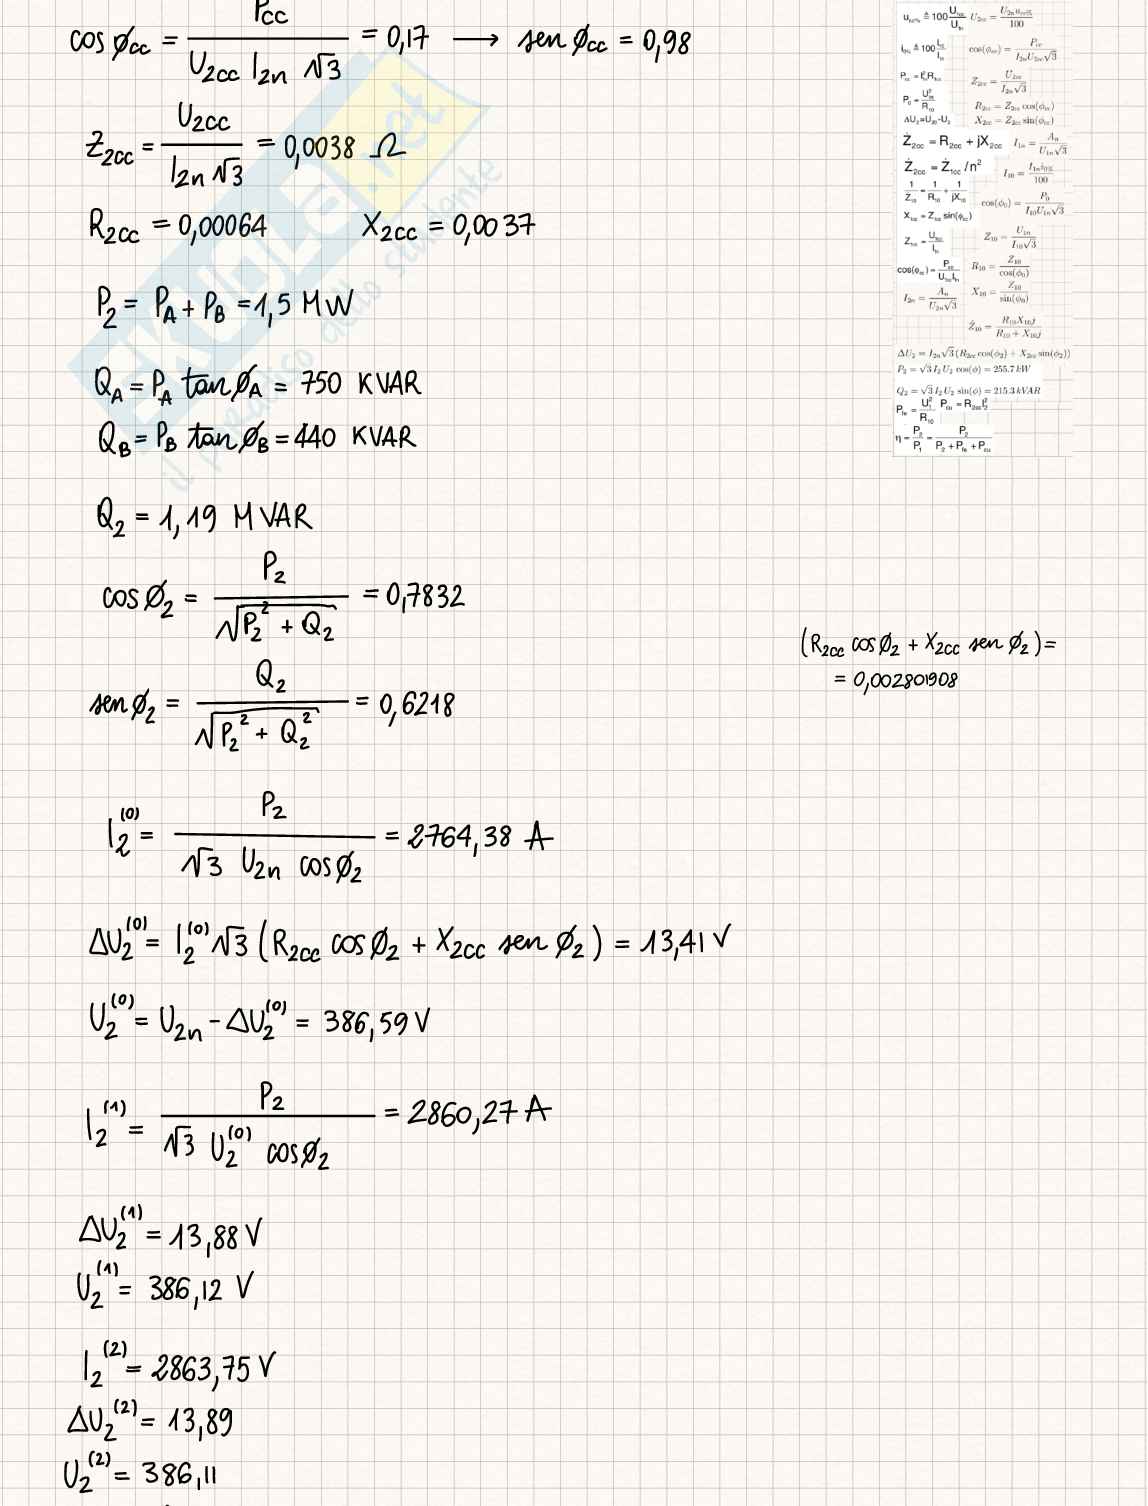 cos ϕcc = Pcc / (U2cc I2n √3) = 0,17 → sen ϕcc = 0,98
Z2cc = U2cc / (I2n √3) = 0,0038 Ω
R2cc = 0,00064 X2cc = 0,0037
P2 = PA + PB = 1,5 MW
QA = PA tan ϕA = 750 KVAR
QB = PB tan ϕB = 440 KVAR
Q2 = 1,19 MVAR
cos ϕ2 = P2 / √(P2² + Q2) = 0,7832
sen ϕ2 = Q2 / √(P2² + Q2²) = 0,6218
I2^(0) = P2 / (√3 U2n cos ϕ2) = 2764,38 A
ΔU2^(0) = I2^(0) √3 (R2cc cos ϕ2 + X2cc sen ϕ2) = 13,41 V
U2^(0) = U2n - ΔU2^(0) = 386,59 V
I2^(1) = P2 / (√3 U2^(0) cos ϕ2) = 2860,27 A
ΔU2^(1) = 13,88 V
U2^(1) = 386,12 V
I2^(2) = 2863,75 V
ΔU2^(2) = 13,89
U2^(2) = 386,11
(R2cc cos ϕ2 + X2cc sen ϕ2) =
= 0,002801908
U2cc = U2n ucc% / 100
cos(ϕcc) = Pcc / (I2n U2cc √3)
Z2cc = U2cc / (I2n √3)
R2cc = Z2cc cos(ϕcc)
X2cc = Z2cc sin(ϕcc)
Ż2cc = R2cc + jX2cc
I1n = An / (U1n √3)
Ż2cc = Ż1cc / n²
I10 = I1n i0% / 100
1/Ż10 = 1/R10 + 1/jX10
cos(ϕ0) = P0 / (I10 U1n √3)
Z10 = U1n / (I10 √3)
R10 = Z10 / cos(ϕ0)
I2n = An / (U2n √3)
X10 = Z10 / sin(ϕ0)
Ż10 = R10 X10 j / (R10 + X10 j)
ΔU2 = I2n √3 (R2cc cos(ϕ2) + X2cc sin(ϕ2))
P2 = √3 I2 U2 cos(ϕ) = 255.7 kW
Q2 = √3 I2 U2 sin(ϕ) = 215.3 kVAR
Pfe = U1² / R10 Pcu = R2cc I2²
η = P2 / P1 = P2 / (P2 + Pfe + Pcu)
SKUOLA.net
il paradiso dello studente